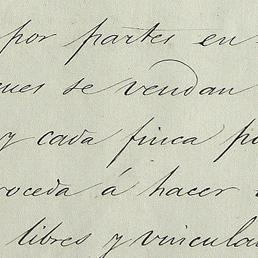 por partes en
ues se vendan
y cada finca po
roceda á hacer
libres y vincula